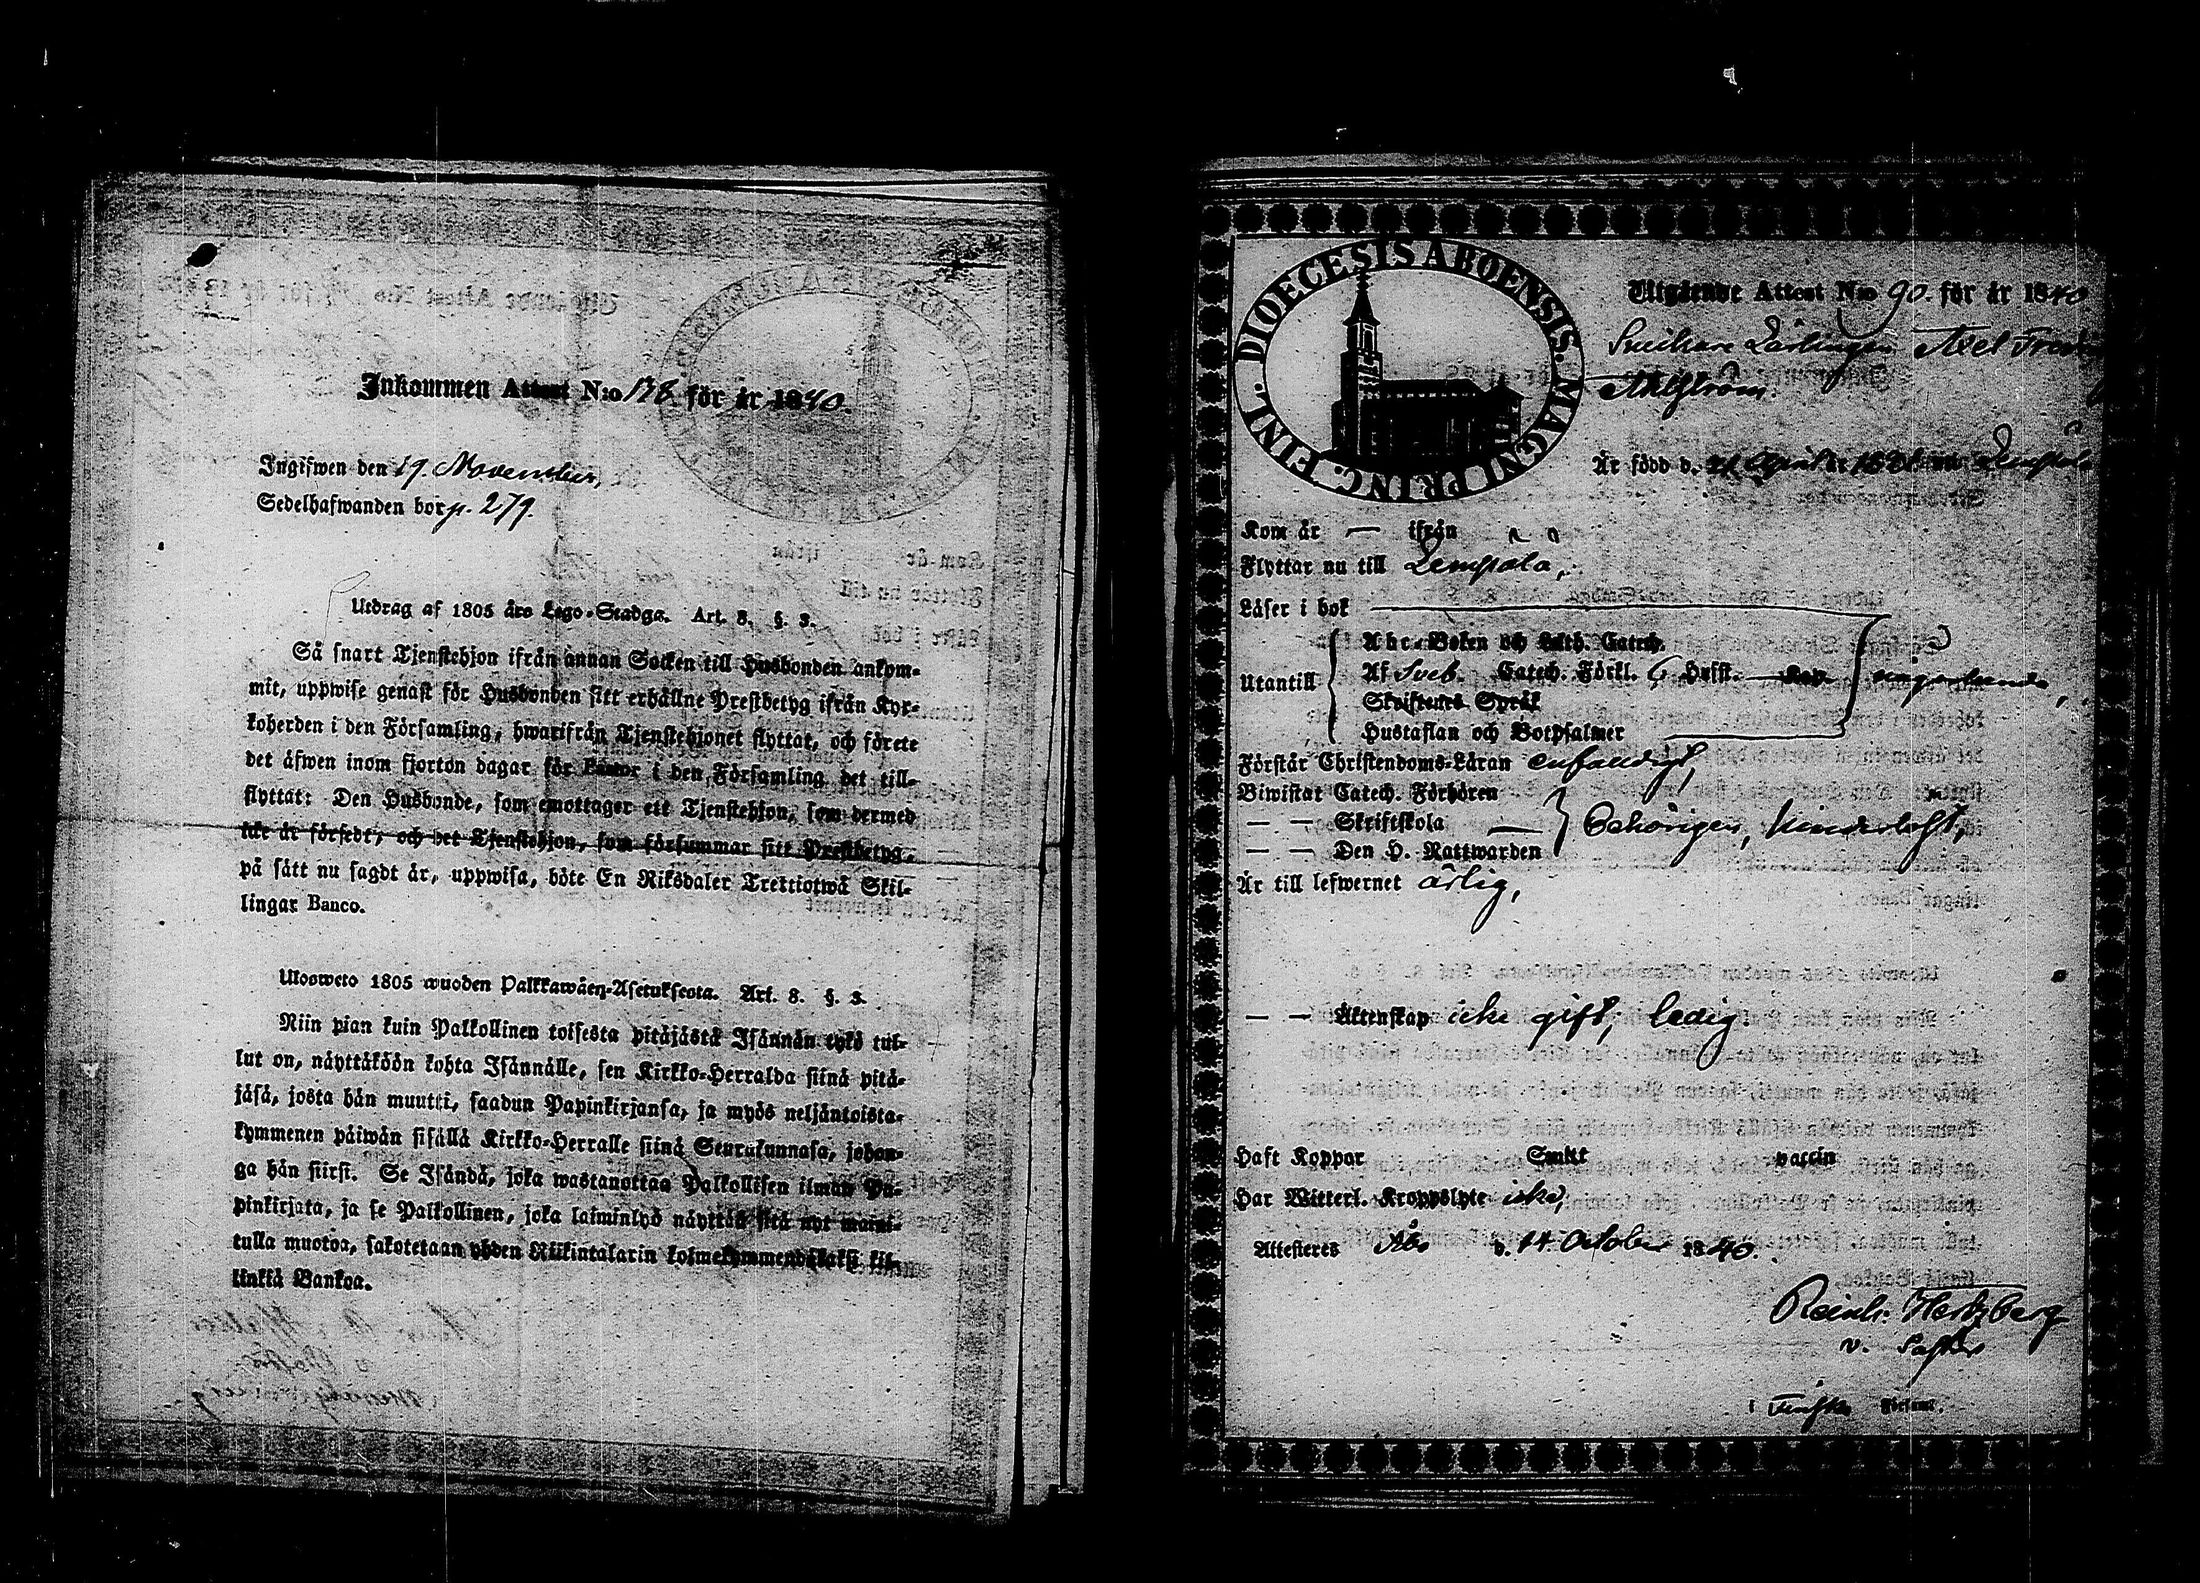 Inkommen Attest N:o 178. för år 1840.
Ingifwen den 19. November,
Sedelhafwanden bor p. 279.
Utdrag af 1805 års Lego-Stadga. Art. 8. §. 3.
Så snart Tjenstehjon ifrån annan Socken till Husbonden ankom-
mit, uppwise genast för Husbonden sitt erhållne Prestbetyg ifrån Kyr-
koherden i den Församling, hwarifrån Tjenstehjonet flyttat, och förete
det äfwen inom fjorton dagar för Pastor i den Församling det till-
flyttat: Den Husbonde, som emottager ett Tjenstehjon, som dermed
icke är försedt, och det Tjenstehjon, som försummar sitt Prestbetyg,
på sätt nu sagdt är, uppwisa, böte En Riksdaler Trettiotwå Skil-
lingar Banco.
Ulosweto 1805 wuoden Palkkawäen-Asetuksesta. Art. 8. §. 3.
Niin pian kuin Palkollinen toisesta pitäjästä Isännän tykö tul-
lut on, näyttäköön kohta Isännälle, sen Kirkko-Herralda siinä pitä-
jäsä, josta hän muutti, saadun Papinkirjansa, ja myös neljäntoista-
kymmenen päiwän sisällä Kirkko-Herralle siinä Seurakunnasa, johon-
ga hän siirsi. Se Isändä, joka wastanottaa Palkollisen ilman Pa-
pinkirjata, ja se Palkollinen, joka laiminlyö näyttää sitä nyt maini-
tulla muotoa, sakotetaan yhden Riikintalarin kolmekymmendäkaksi kil-
linkiä Bankoa.
DIOECESIS ABOENSIS. MAGNI PRINC. FINL.
Utgående Attest N:o 90. för år 1840
Axel
Ahlström.
Är född d. 21 April
Kom år — ifrån
Flyttar nu till Lempala,
Läser i bok
Utantill
Abc-Boken och Luth. Catech.
Af Sveb. Catech. Förkl. 6 Hufst. Kap.
Skriftenes Språk
Hustaflan och Botpsalmer
Förstår Christendoms-Läran enfaldigt,
Biwistat Catech. Förhören
— — Skriftskola —
— — Den H. Nattwarden
Behörigen, hinderlöst,
Är till lefwernet ärlig,
— — Äktenskap icke gift, ledig.
Haft Koppor Smitt vaccin
Har Witterl. Kroppslyte icke,
Attesteres Åbo d. 14 October 1840.
Reinh. Hertzberg
v. Pastor
i Finska Församl.